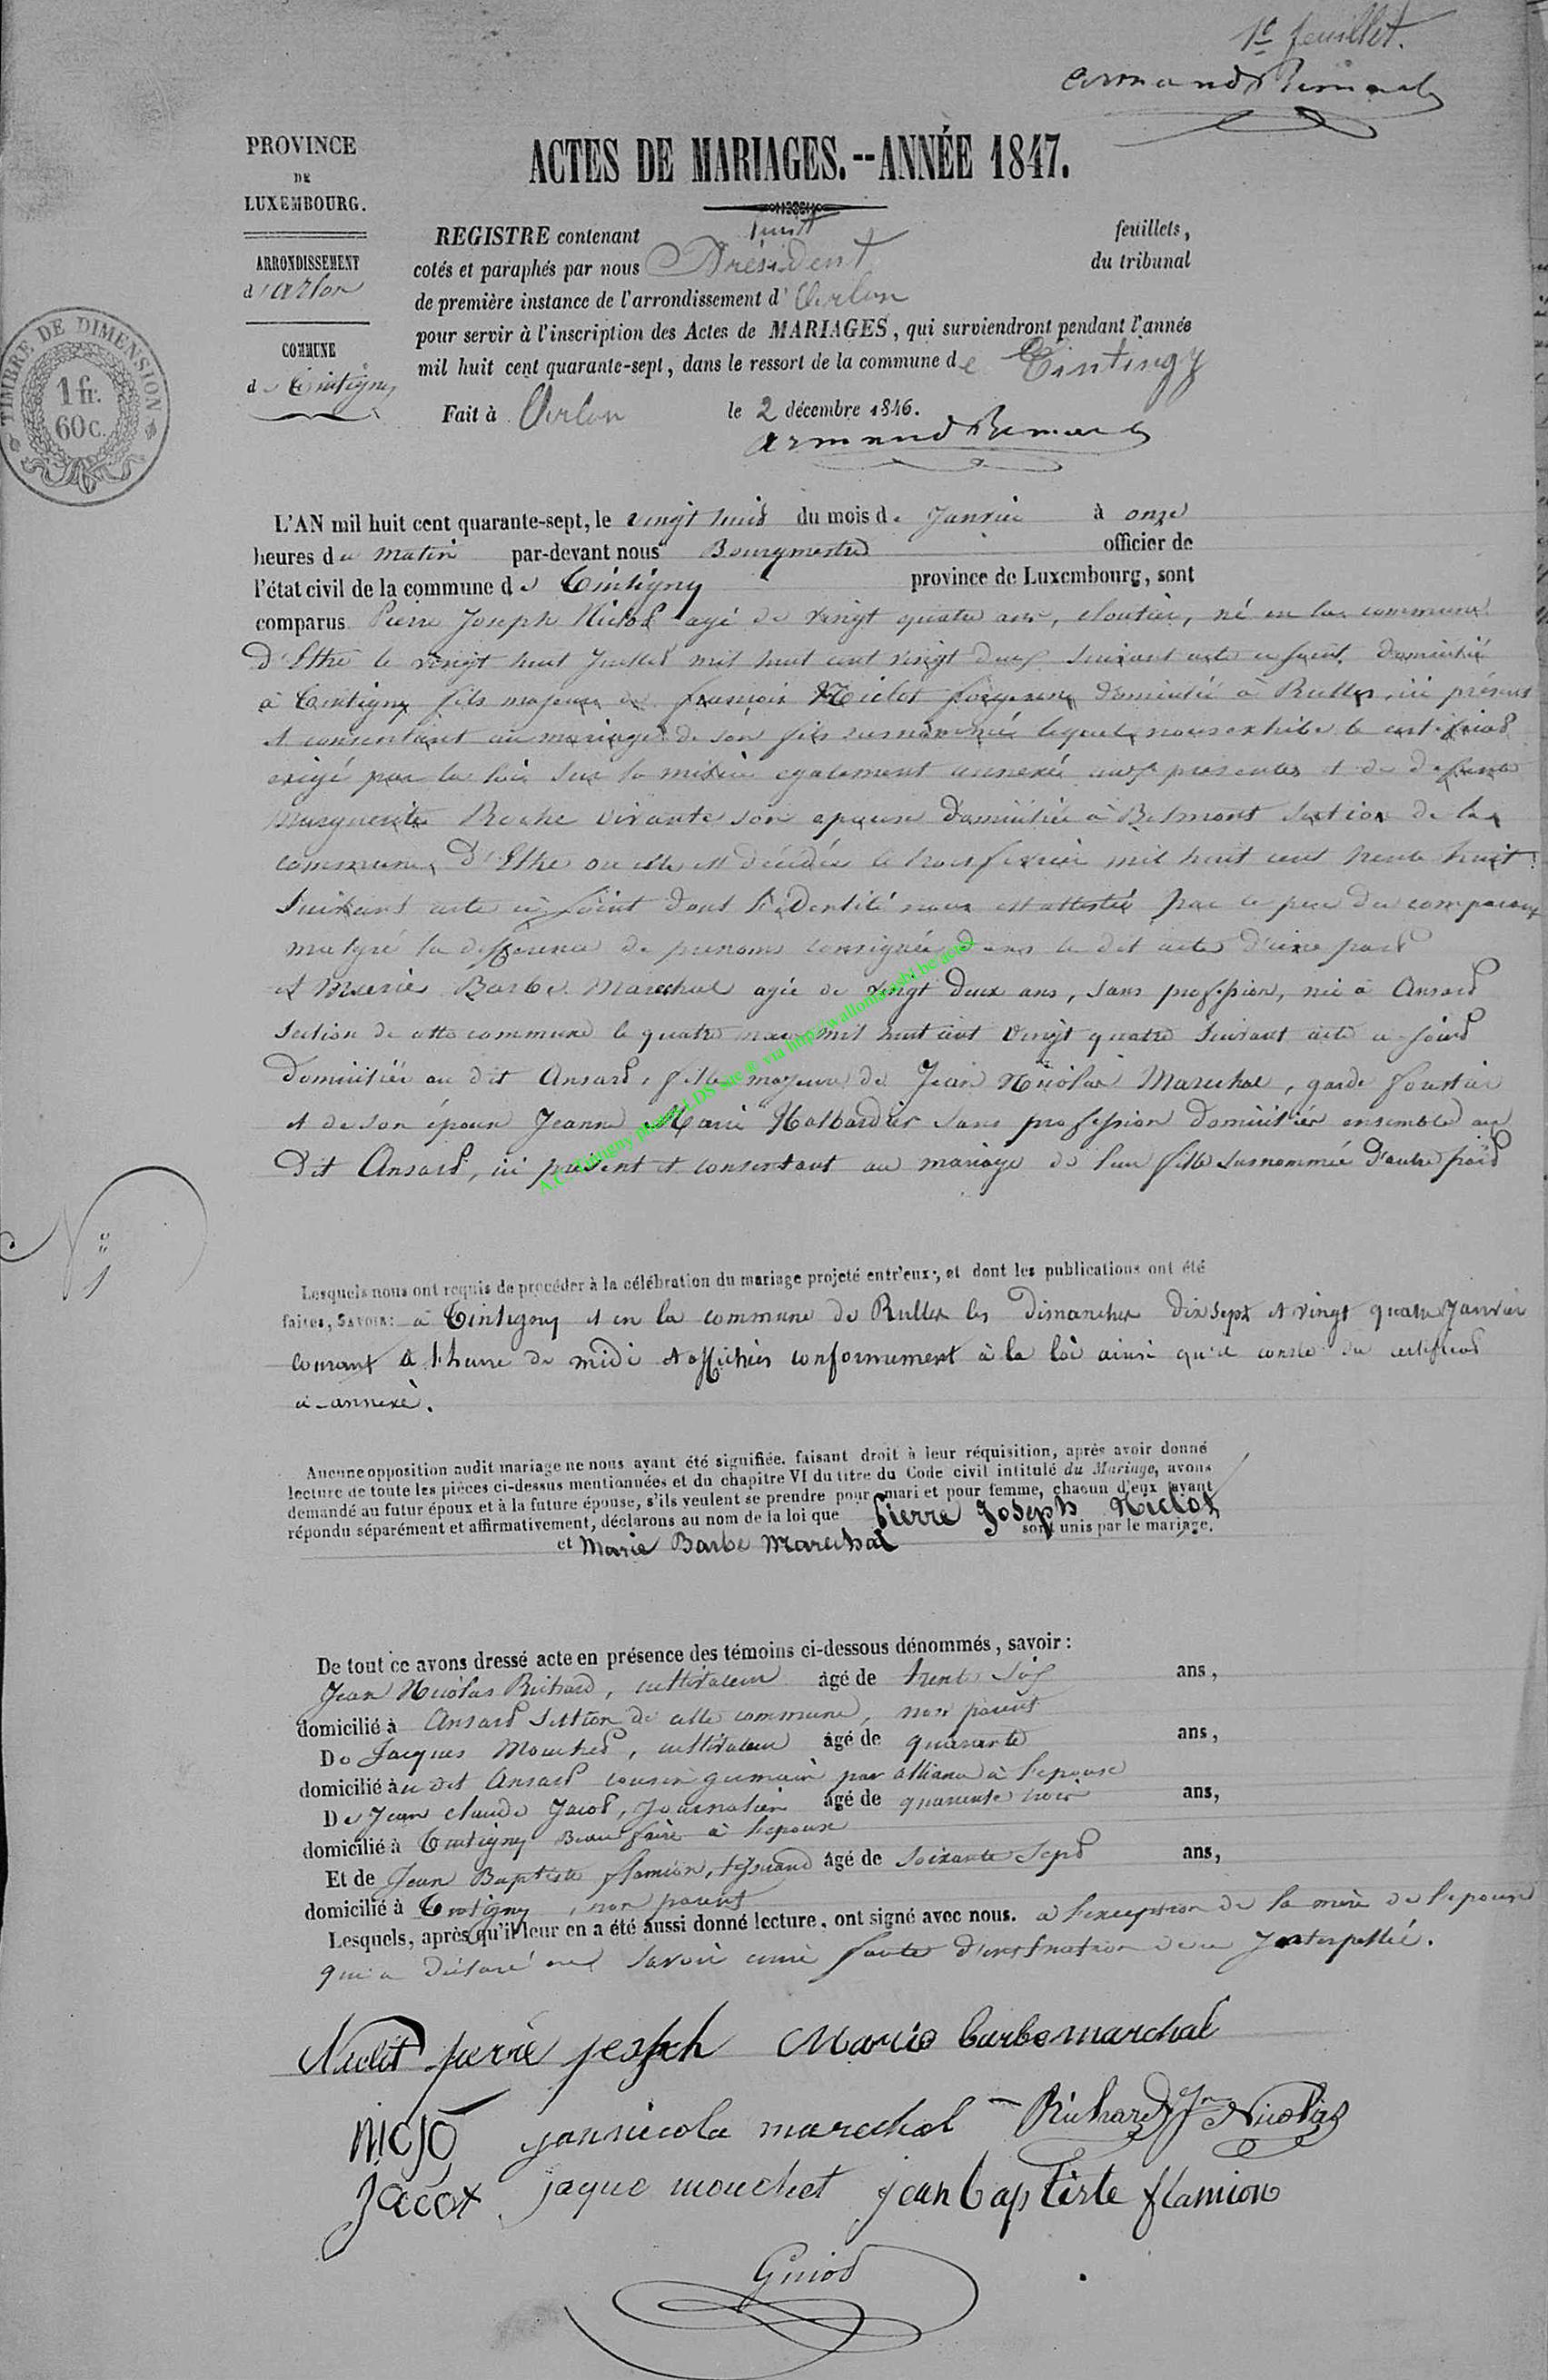 1e feuillet.
PROVINCE
DE
LUXEMBOURG.
ARRONDISSEMENT
d'Arlon
COMMUNE
de Tintigny
TIMBRE DE DIMENSION
1 fr.
60 c.
ACTES DE MARIAGES.--ANNÉE 1847.
REGISTRE contenant huit feuillets,
cotés et paraphés par nous Président du tribunal
de première instance de l'arrondissement d'Arlon
pour servir à l'inscription des Actes de MARIAGES, qui surviendront pendant l'année
mil huit cent quarante-sept, dans le ressort de la commune de Tintingy
Fait à Arlon le 2 décembre 1846.
L'AN mil huit cent quarante-sept, le vingt huit du mois de Janvier à onze
heures du matin par-devant nous Bourgmestre officier de
l'état civil de la commune de Tintigny province de Luxembourg, sont
comparus Pierre Joseph Niclot agé de vingt quatre ans, cloutier, né en la commune
d'Ethe le vingt huit Juillet mil huit cent vingt deux suivant acte ci joint domicilié
à Tintigny fils majeur de françois Niclot forgeron domicilié à Rulles, ici présent
et consentant au mariage de son fils susnommé lequel nous exhibe le certificat
exigé par la loi sur la milice egalement annexé aux presentes et de defunte
Marguerite Roche vivante son epouse domiciliée à Belmont section de la
commune d'Ethe ou elle est décédée le trois fevrier mil huit cent trente huit
suivant acte ci joint dont l'identité nous est attestée par le pere du comparant
malgré la difference de prenoms consignée dans le dit acte d'une part
et Marie Barbe Marechal agée de vingt deux ans, sans profession, née à Ansart
section de cette commune le quatre mil huit cent vingt quatre suivant acte ci joint
domiciliée au dit Ansart, fille majeure de Jean Nicolas Marechal, garde forestier
et de son épouse Jeanne Marie Halbardier sans profession domiciliés ensemble au
dit Ansart, ici présent et consentant au mariage de leur fille susnommée d'autre part
N° 1
Lesquels nous ont requis de procéder à la célébration du mariage projeté entr'eux, et dont les publications ont été
faites, SAVOIR: à Tintigny et en la commune de Rulles les Dimanches dix sept et vingt quatre Janvier
courant à l'heure de midi et affichées conformement à la loi ainsi qu'il conste du certificat
ci-annexé.
Aucune opposition audit mariage ne nous ayant été signifiée. faisant droit à leur réquisition, après avoir donné
lecture de toute les pièces ci-dessus mentionnées et du chapitre VI du titre du Code civil intitulé du Mariage, avons
demandé au futur époux et à la future épouse, s'ils veulent se prendre pour mari et pour femme, chacun d'eux ayant
répondu séparément et affirmativement, déclarons au nom de la loi que Pierre Joseph Niclot
et Marie Barbe Marechal sont unis par le mariage.
De tout ce avons dressé acte en présence des témoins ci-dessous dénommés, savoir :
Jean Nicolas Richard, cultivateur âgé de trente six ans,
domicilié à Ansart section de cette commune, non parent
De Jacques Mouchet, cultivateur âgé de quarante ans,
domicilié au dit Ansart cousin germain par alliance à l'epouse
De Jean claude Jacot, Journalier âgé de quarante trois ans,
domicilié à Tintigny Beau frère à l'epoux
Et de Jean Baptiste flamion, tisserand âgé de soixante sept ans,
domicilié à Tintigny, non parent
Lesquels, après qu'il leur en a été aussi donné lecture, ont signé avec nous. à l'exception de la mère de l'epouse
qui a déclaré ne savoir faute d'instruction de ce Interpellée.
Niclot pierre joseph Marie barbe marchal
jannicola marechal Richard Jn Nicolas
Jacot jaque mouchet jean baptiste flamion
Guiot